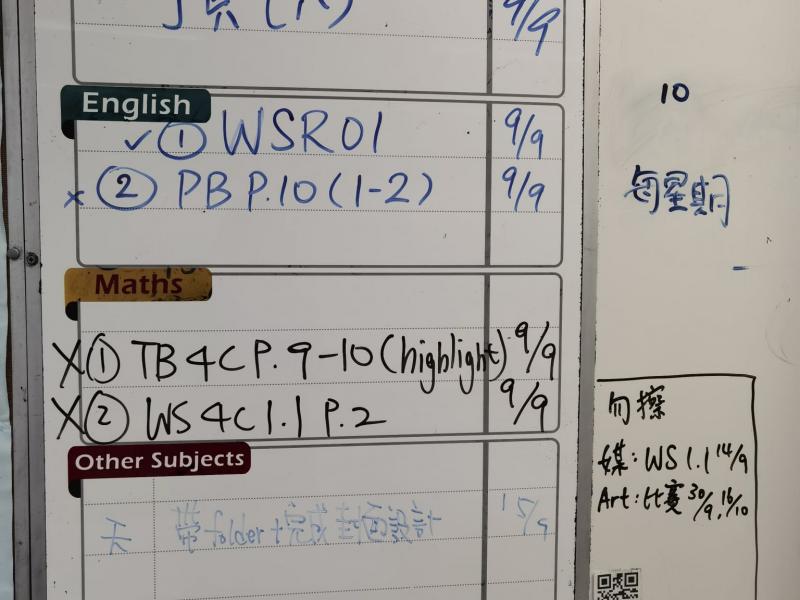 9/9
English
✓ ① WSR01 9/9
× ② PB P.10 (1-2) 9/9
Maths
X ① TB 4C P. 9-10 (highlight) 9/9
X ② WS 4C 1.1 P.2 9/9
Other Subjects
帶 folder + 完成封面設計 15/9
10
每星期
勿擦
媒: WS 1.1 14/9
Art: 比賽 30/9, 16/10